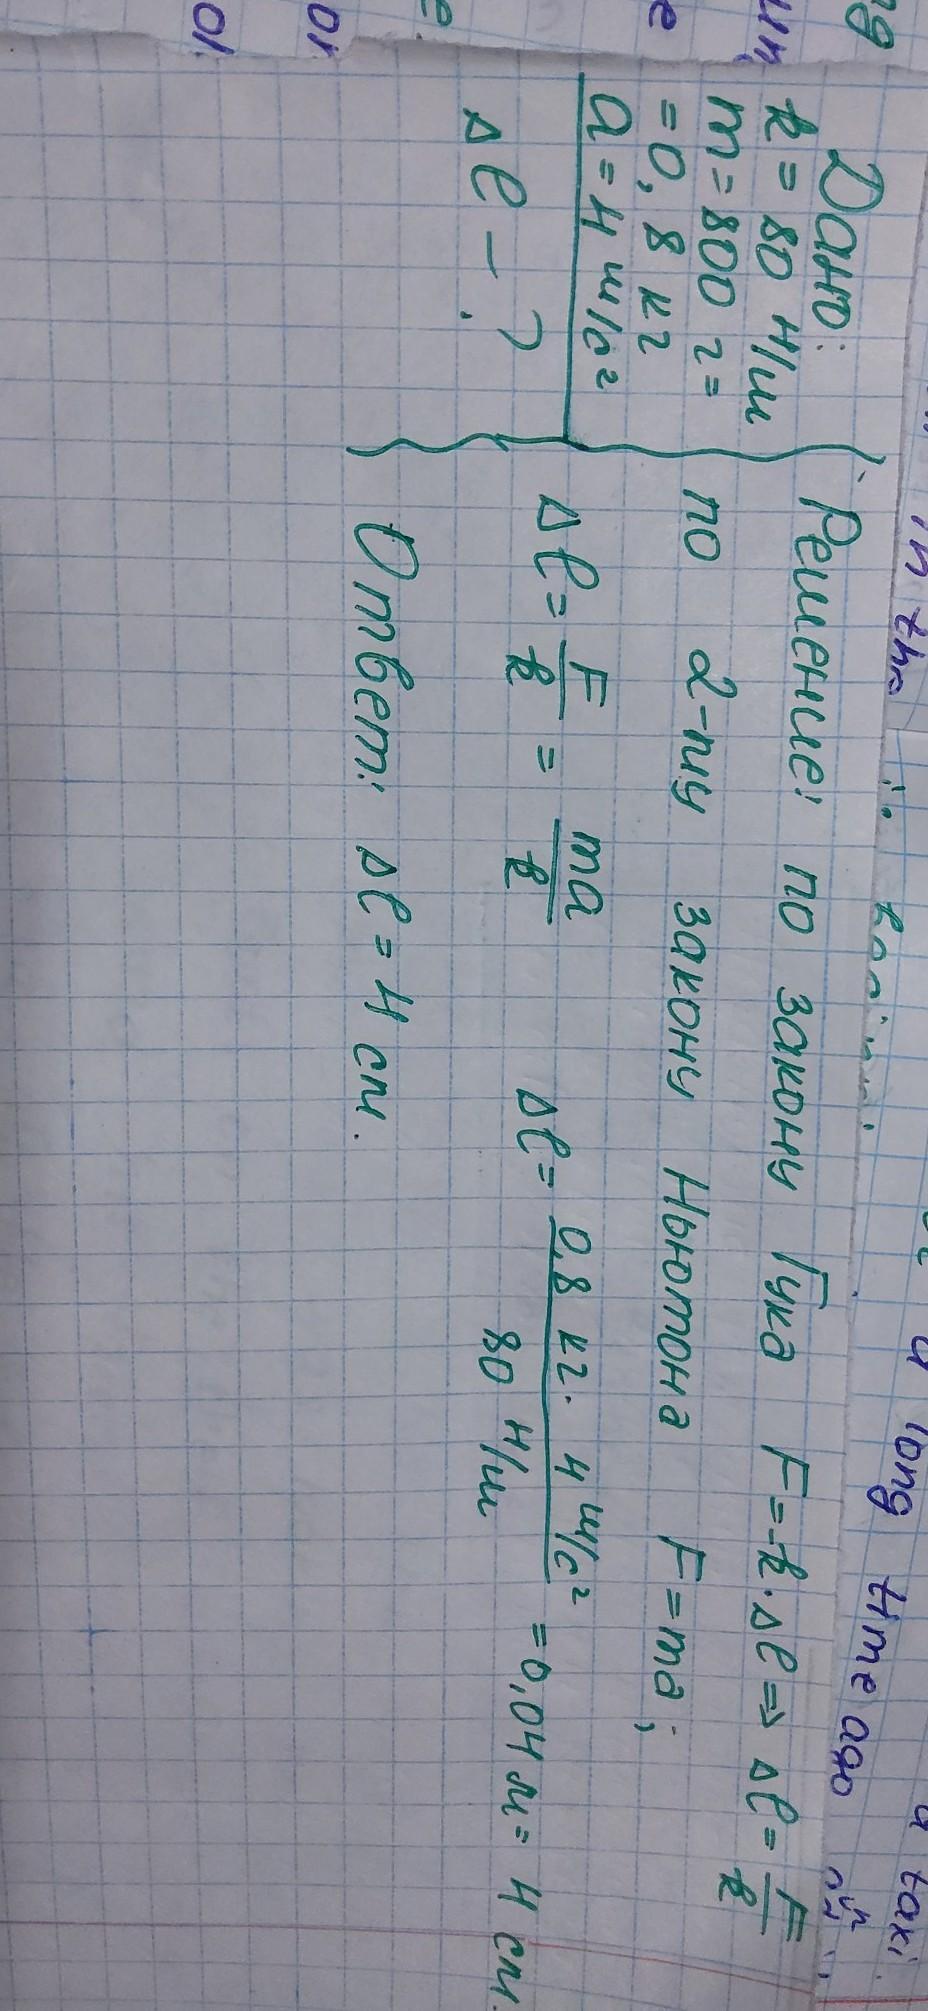 Дано:
k = 80 Н/м
m = 800 г =
= 0,8 кг
a = 4 м/с²
Δl - ?
Решение: по закону Гука F=-k·Δl ⇒ Δl = F/k
по 2-му закону Ньютона F = ma;
Δl = F/k = ma/k Δl = 0,8 кг · 4 м/с² / 80 Н/м = 0,04 м = 4 см.
Ответ: Δl = 4 см.
in the
a long time ago
a taxi